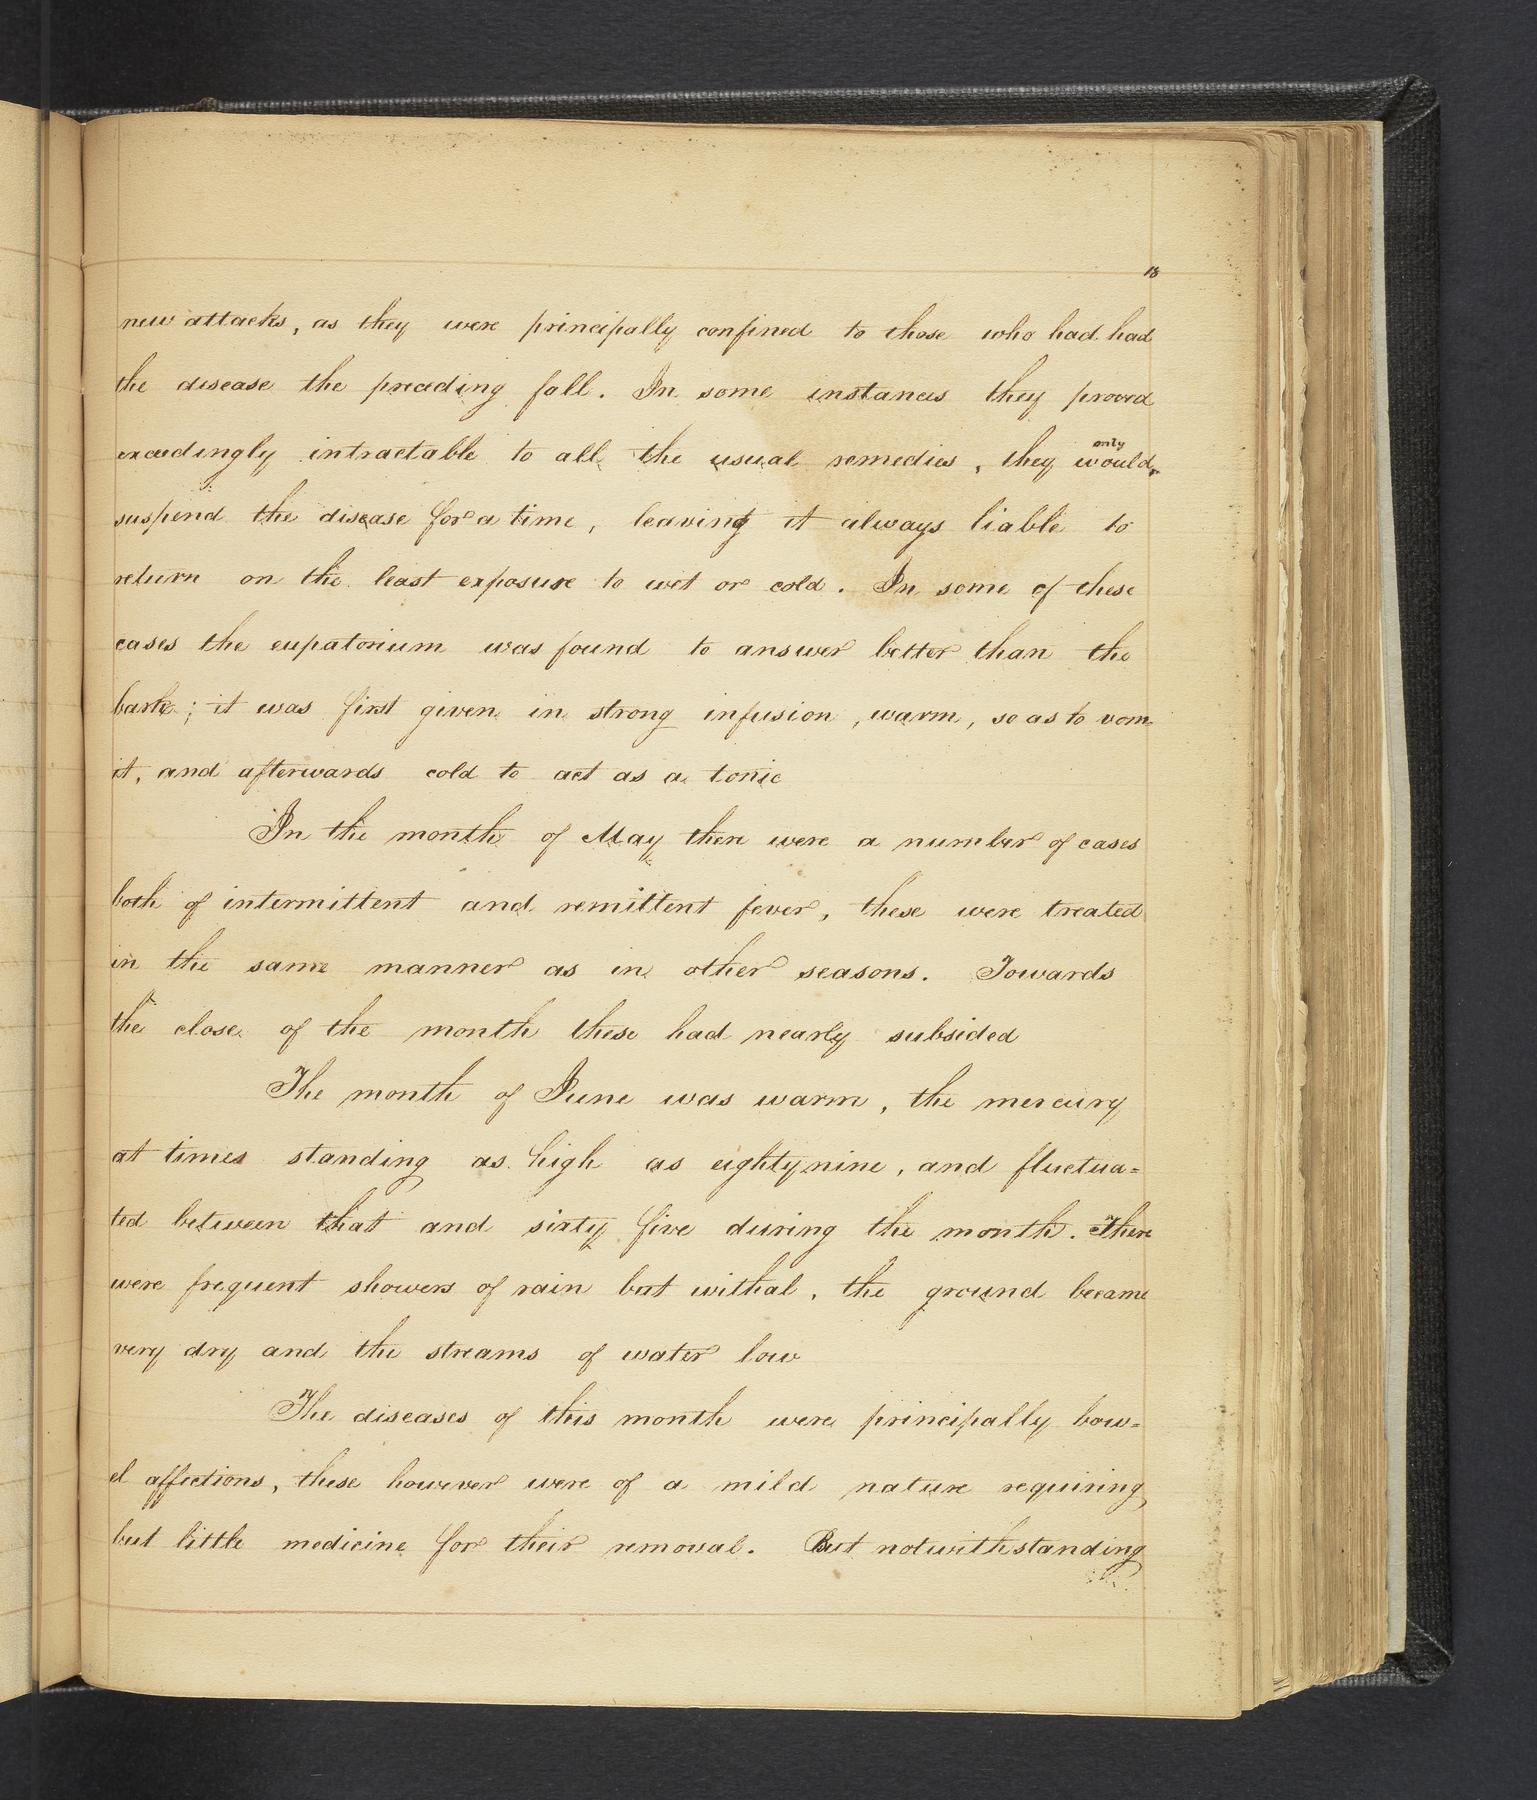 18
new attacks, as they were principally confined to those who had had
the disease the preceding fall. In some instances they proved
exceedingly intractable to all the usual remedies, they would only
suspend the disease for a time, leaving it always liable to
return on the least exposure to wet or cold. In some of these
cases the eupatorium was found to answer better than the
bark; it was first given in strong infusion, warm, so as to vom-
it, and afterwards cold to act as a tonic
In the month of May there were a number of cases
both of intermittent and remittent fever, these were treated
in the same manner as in other seasons. Towards
the close of the month these had nearly subsided
The month of June was warm, the mercury
at times standing as high as eighty nine, and fluctua=
ted between that and sixty five during the month. There
were frequent showers of rain but withal, the ground became
very dry and the streams of water low
The diseases of this month were principally bow=
el affections, these however were of a mild nature requiring
but little medicine for their removal. But notwithstanding